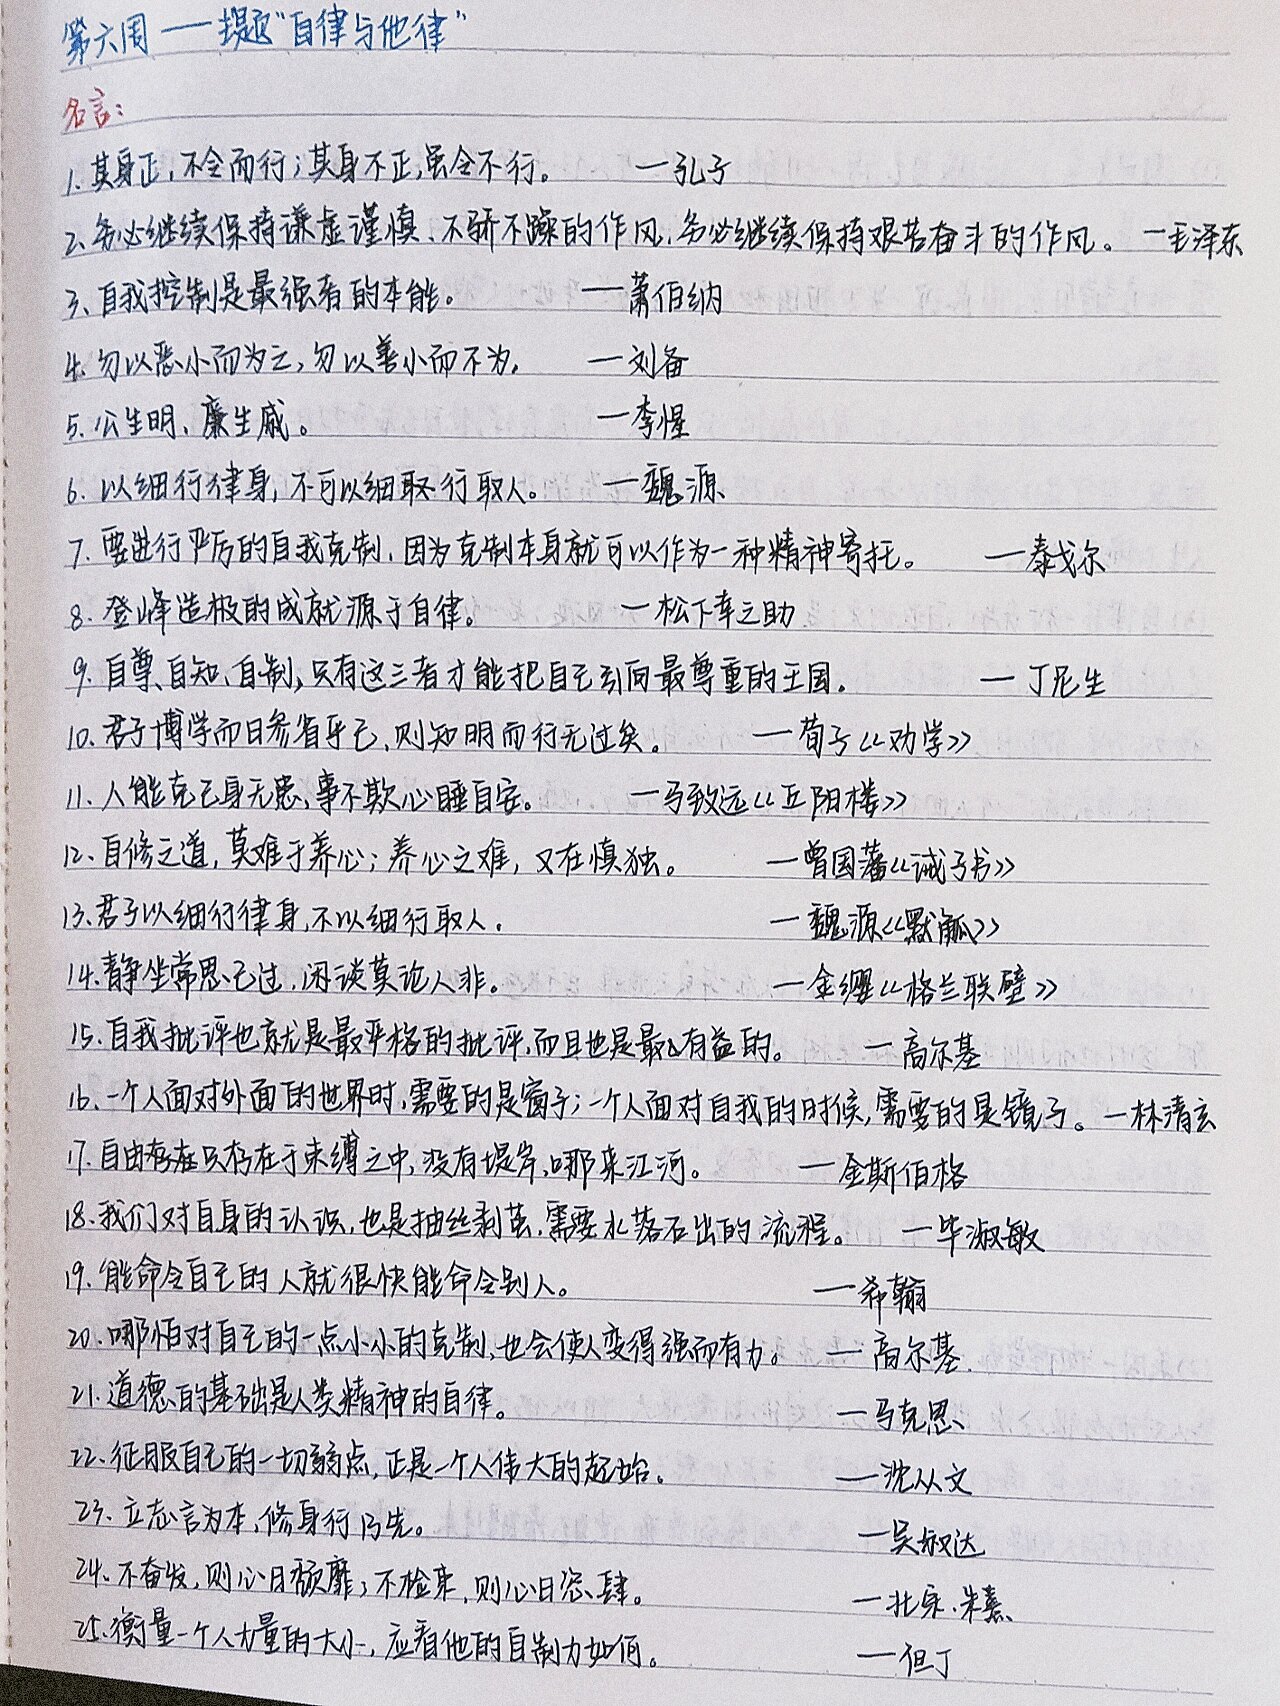 第六周——主题“自律与他律”
名言：
1、其身正，不令而行；其身不正，虽令不行。 —孔子
2、务必继续保持谦虚谨慎、不骄不躁的作风，务必继续保持艰苦奋斗的作风。 —毛泽东
3、自我控制是最强者的本能。 —萧伯纳
4、勿以恶小而为之，勿以善小而不为。 —刘备
5、公生明、廉生威。 —李惺
6、以细行律身，不可以细取行取人。 —魏源
7、要进行严厉的自我克制，因为克制本身就可以作为一种精神寄托。 —泰戈尔
8、登峰造极的成就源于自律。 —松下幸之助
9、自尊、自知、自制，只有这三者才能把自己引向最尊重的王国。 —丁尼生
10、君子博学而日参省乎己，则知明而行无过矣。 —荀子《劝学》
11、人能克己身无患，事不欺心睡自安。 —马致远《岳阳楼》
12、自修之道，莫难于养心；养心之难，又在慎独。 —曾国藩《诫子书》
13、君子以细行律身，不以细行取人。 —魏源《默觚》
14、静坐常思己过，闲谈莫论人非。 —金缨《格兰联璧》
15、自我批评也就是最严格的批评，而且也是最有益的。 —高尔基
16、一个人面对外面的世界时，需要的是窗子；一个人面对自我的时候，需要的是镜子。 —林清玄
17、自由存在只存在于束缚之中，没有堤岸，哪来江河。 —金斯伯格
18、我们对自身的认识，也是抽丝剥茧，需要水落石出的流程。 —毕淑敏
19、能命令自己的人就很快能命令别人。 —希翰
20、哪怕对自己的一点小小的克制，也会使人变得强而有力。 —高尔基
21、道德的基础是人类精神的自律。 —马克思
22、征服自己的一切弱点，正是一个人伟大的起始。 —沈从文
23、立志言为本，修身行乃先。 —吴叔达
24、不奋发，则心日颓靡；不检束，则心日恣肆。 —北宋·朱熹
25、衡量一个人力量的大小，应看他的自制力如何。 —但丁